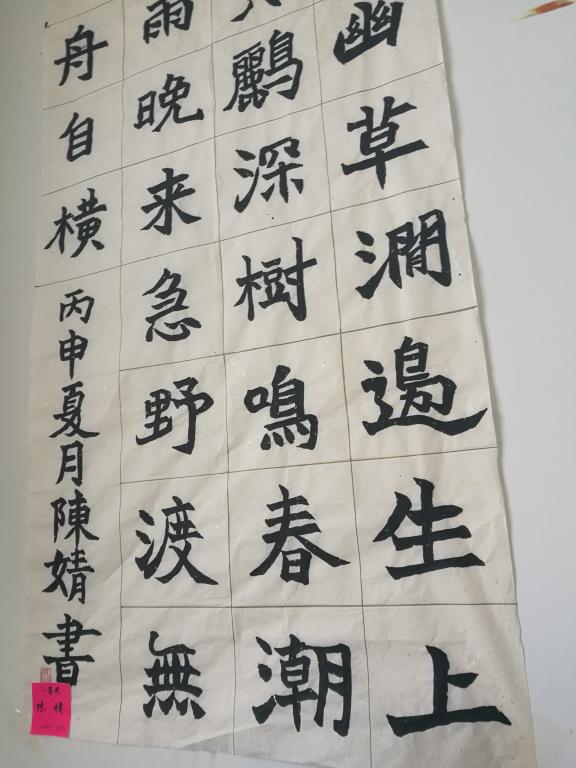 幽草澗邊生上
鸝深樹鳴春潮
雨晚来急野渡無
舟自横
丙申夏月陳婧書
一等奖
陈婧